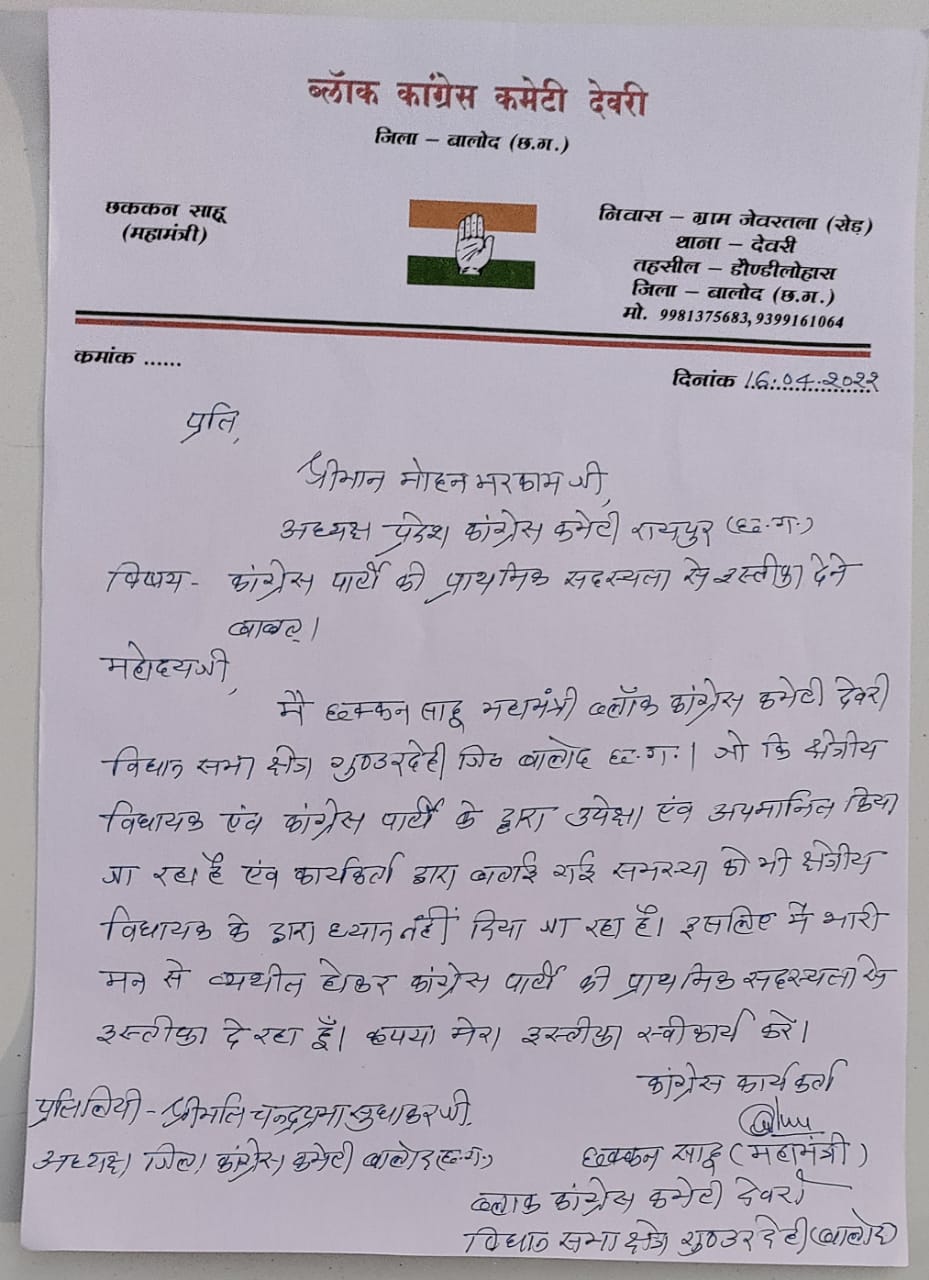 ब्लॉक कांग्रेस कमेटी देवरी
जिला – बालोद (छ.ग.)
छककन साहू
(महामंत्री)
निवास – ग्राम जेवरतला (रोड़)
थाना – देवरी
तहसील – डौण्डीलोहारा
जिला – बालोद (छ.ग.)
मो. 9981375683,9399161064
कमांक ......
दिनांक 16.04.2022
प्रति,
श्रीमान मोहन मरकाम जी,
अध्यक्ष प्रदेश कांग्रेस कमेटी रायपुर (छ.ग.)
विषय- कांग्रेस पार्टी की प्राथमिक सदस्यता से इस्तीफा देने
बाबत्।
महोदयजी,
मै छक्कन साहू महामंत्री ब्लॉक कांग्रेस कमेटी देवरी
विधान सभा क्षेत्र गुण्डरदेही जि० बालोद छ.ग.। जो कि क्षेत्रीय
विधायक एंव कांग्रेस पार्टी के द्वारा उपेक्षा एंव अपमानित किया
जा रहा है एंव कार्यकर्ता द्वारा बताई गई समस्या को भी क्षेत्रीय
विधायक के द्वारा ध्यान नहीं दिया जा रहा है। इसलिए मैं भारी
मन से व्यथीत होकर कांग्रेस पार्टी की प्राथमिक सदस्यता से
इस्तीफा दे रहा हूँ। कृपया मेरा इस्तीफा स्वीकार्य करें।
कांग्रेस कार्यकर्ता
प्रतिलिपी - श्रीमति चन्द्रप्रभा सुधाकर जी.
अध्यक्ष जिला कांग्रेस कमेटी बालोद (छ.ग.)
छक्कन साहू (महामंत्री)
ब्लाक कांग्रेस कमेटी देवरी
विधान सभा क्षेत्र गुण्डरदेही (बालोद)